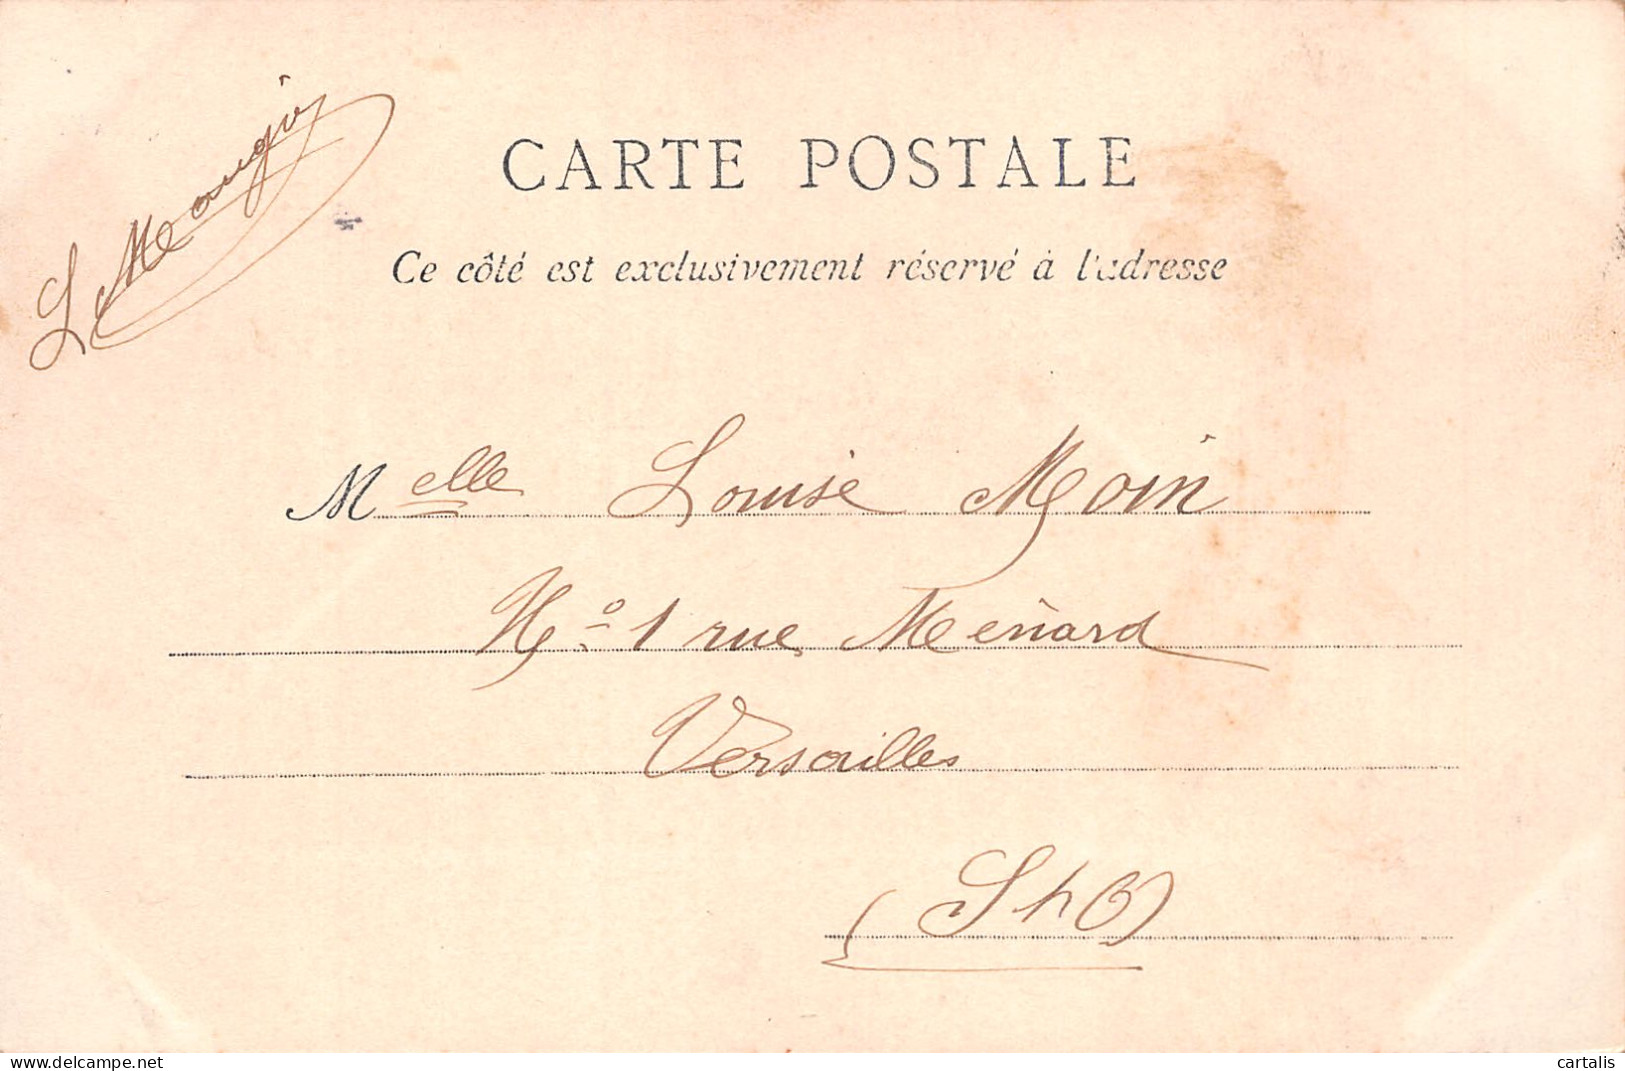 CARTE POSTALE
Ce côté est exclusivement réservé à l'adresse
Melle Louise Moin
No 1 rue Ménard
Versailles
(S h O)
www.delcampe.net
cartalis